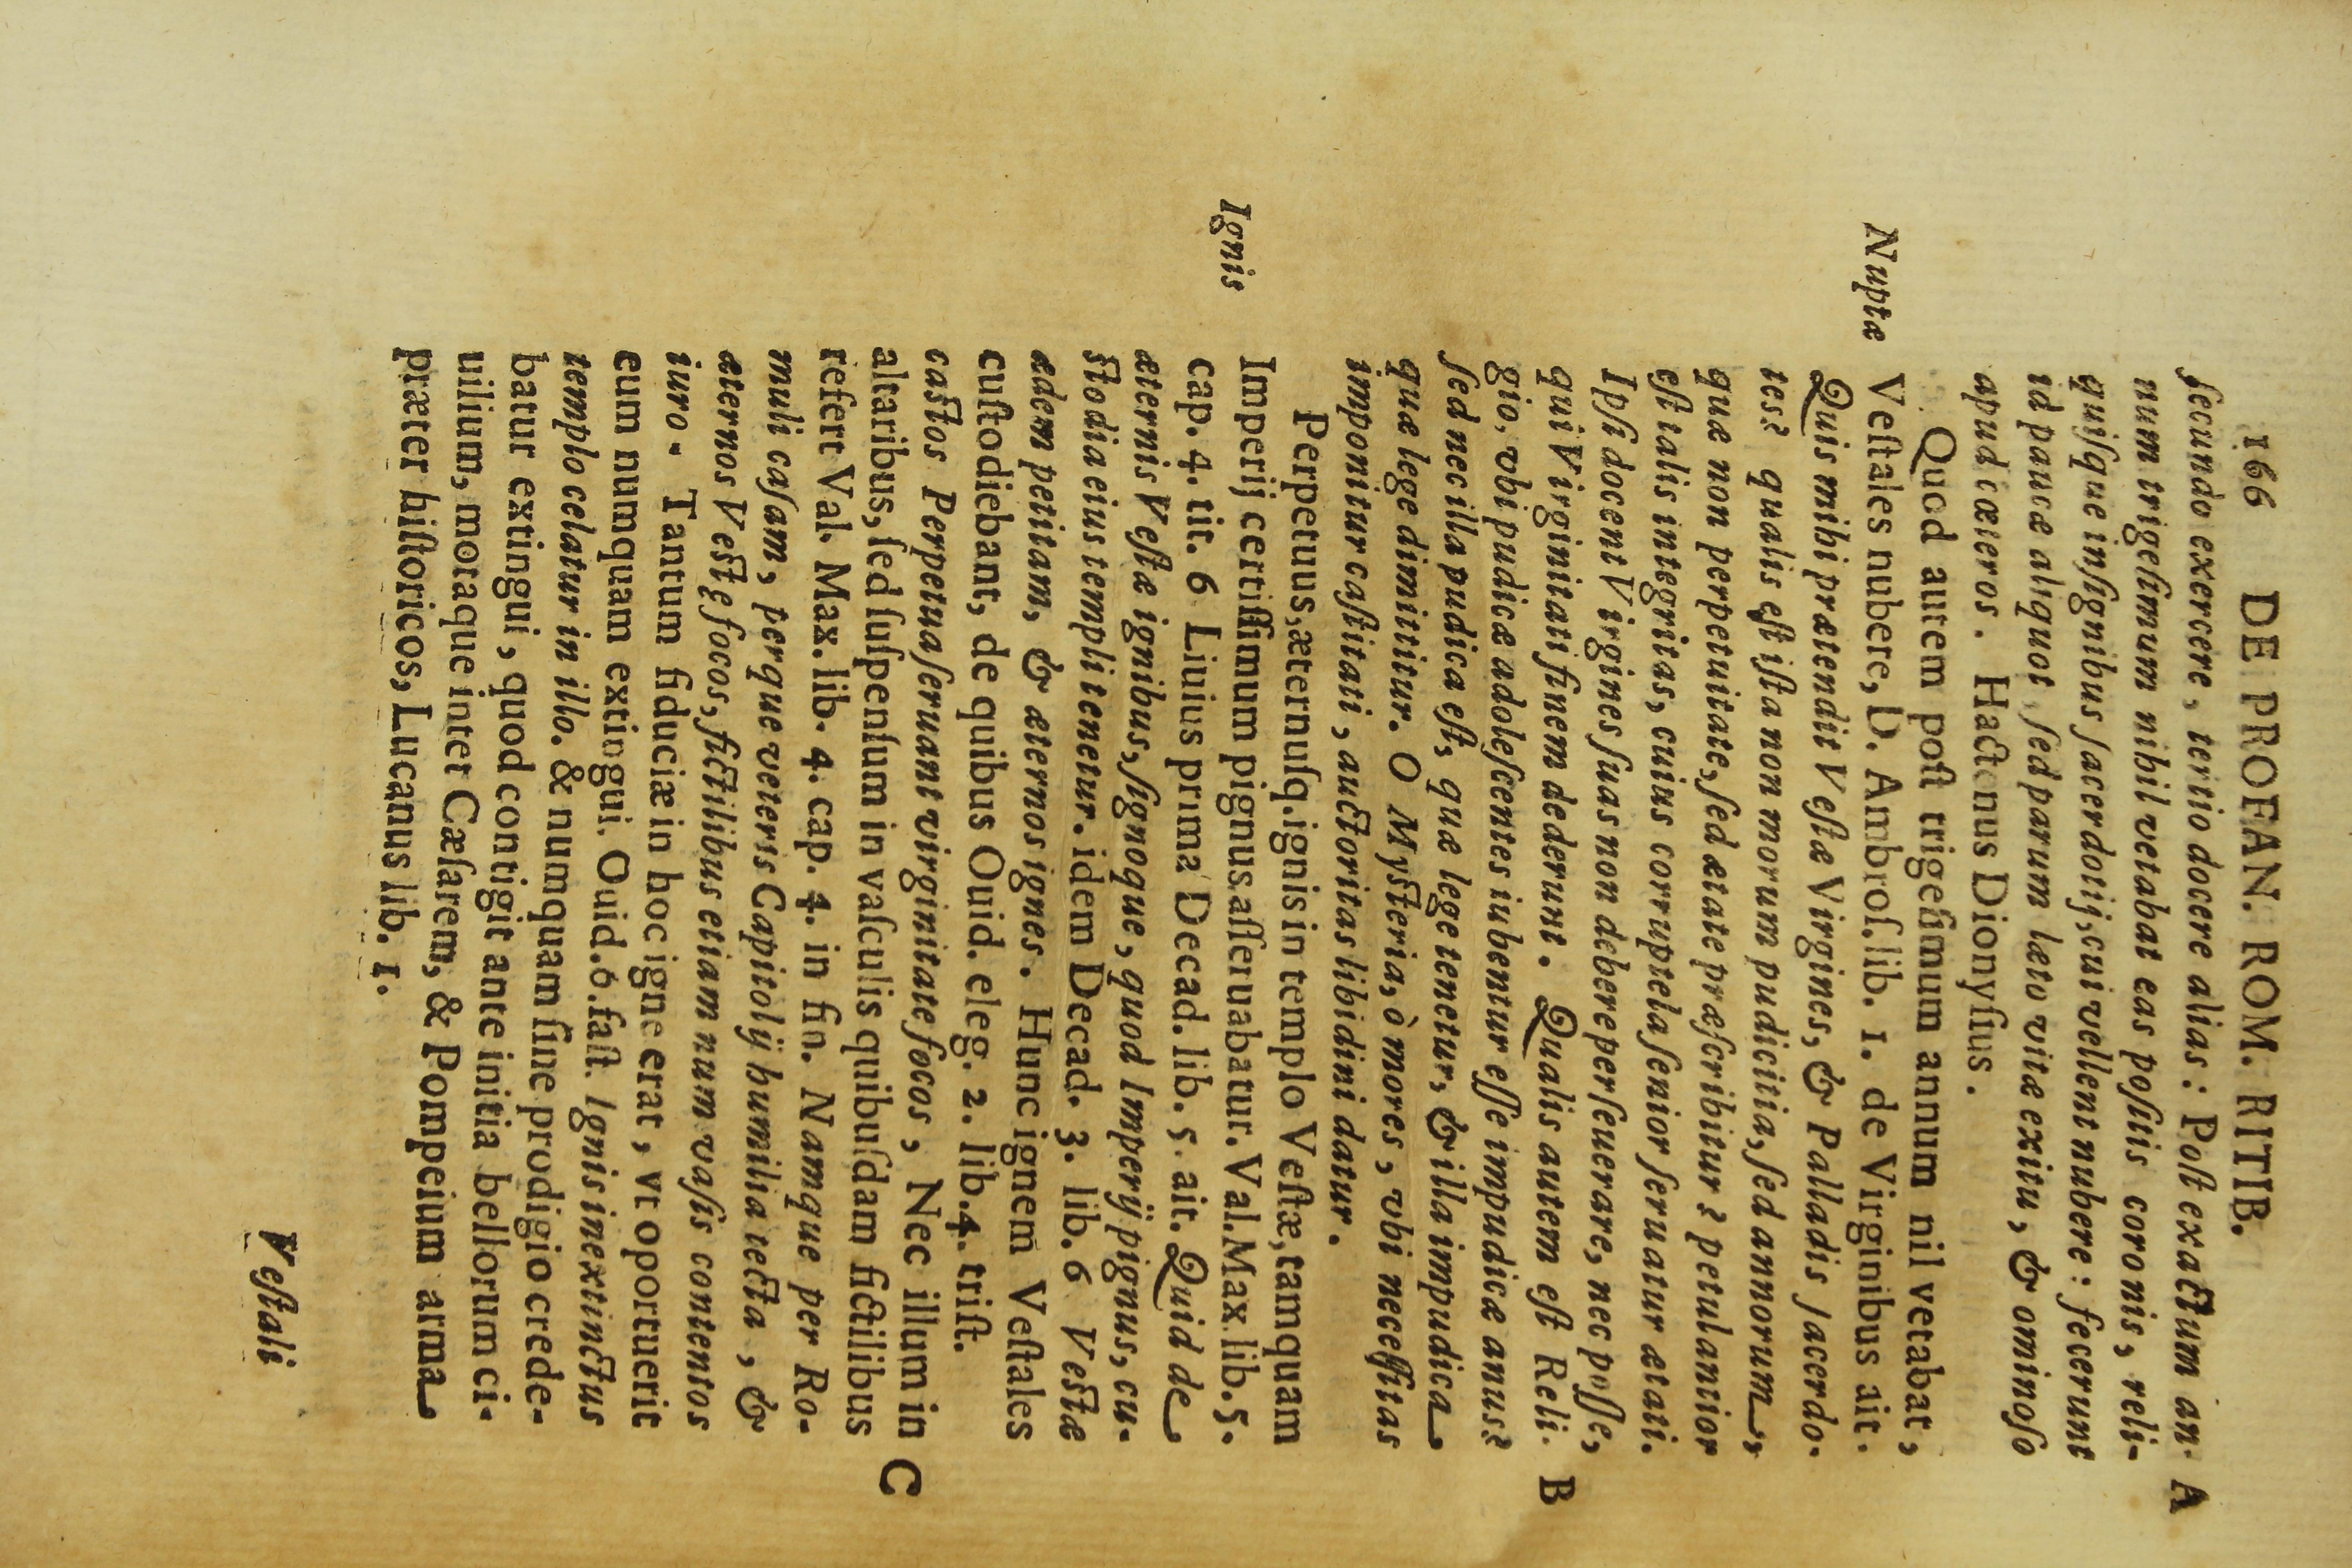 166 DE PROFAN. ROM. RITIB.
ſecundo exercere, tertio docere alias: Poſt exactum an- A
num trigeſimum nihil vetabat eas poſitis coronis, reli-
quiſque inſignibus ſacerdotij, cui vellent nubere: fecerunt
id paucæ aliquot ſed parum læto vitæ exitu, & ominoſo
apud cæteros. Hactenus Dionyſius.
Quod autem poſt trigeſimum annum nil vetabat,
Nuptæ Veſtales nubere, D. Ambroſ. lib. 1. de Virginibus ait.
Quis mihi prætendit Veſtæ Virgines, & Palladis ſacerdo-
tes? qualis eſt iſta non morum pudicitia, ſed annorum,
quæ non perpetuitate, ſed ætate præſcribitur? petulantior
eſt talis integritas, cuius corruptela ſenior ſeruatur ætati.
Ipſi docent Virgines ſuas non debere perſeuerare, nec poſſe,
qui Virginitati finem dederunt. Qualis autem eſt Reli- B
gio, vbi pudicæ adoleſcentes iubentur eſſe impudicæ anus?
ſed nec illa pudica eſt, quæ lege tenetur, & illa impudica
quæ lege dimittitur. O Myſteria, ò mores, vbi neceſſitas
imponitur caſtitati, auctoritas libidini datur.
Perpetuus, æternuſq. ignis in templo Veſtæ, tamquam
Ignis Imperij certiſſimum pignus aſſeruabatur. Val. Max. lib. 5.
cap. 4. tit. 6 Liuius prima Decad. lib. 5. ait. Quid de
æternis Veſtæ ignibus, ſignoque, quod Imperij pignus, cu-
ſtodia eius templi tenetur. idem Decad. 3. lib. 6 Veſtæ
ædem petitam, & æternos ignes. Hunc ignem Veſtales
cuſtodiebant, de quibus Ouid. eleg. 2. lib. 4. triſt.
caſtos Perpetua ſeruant virginitate focos, Nec illum in C
altaribus, ſed ſuſpenſum in vaſculis quibuſdam fictilibus
refert Val. Max. lib. 4. cap. 4. in fin. Namque per Ro-
muli caſam, perque veteris Capitolij humilia tecta, &
æternos Veſtę focos, fictilibus etiam num vaſis contentos
iuro. Tantum fiduciæ in hoc igne erat, vt oportuerit
eum numquam extingui. Ouid. 6. faſt. Ignis inextinctus
templo celatur in illo. & numquam ſine prodigio crede-
batur extingui, quod contigit ante initia bellorum ci-
uilium, motaque inter Cæſarem, & Pompeium arma
præter hiſtoricos, Lucanus lib. 1.
Veſtali